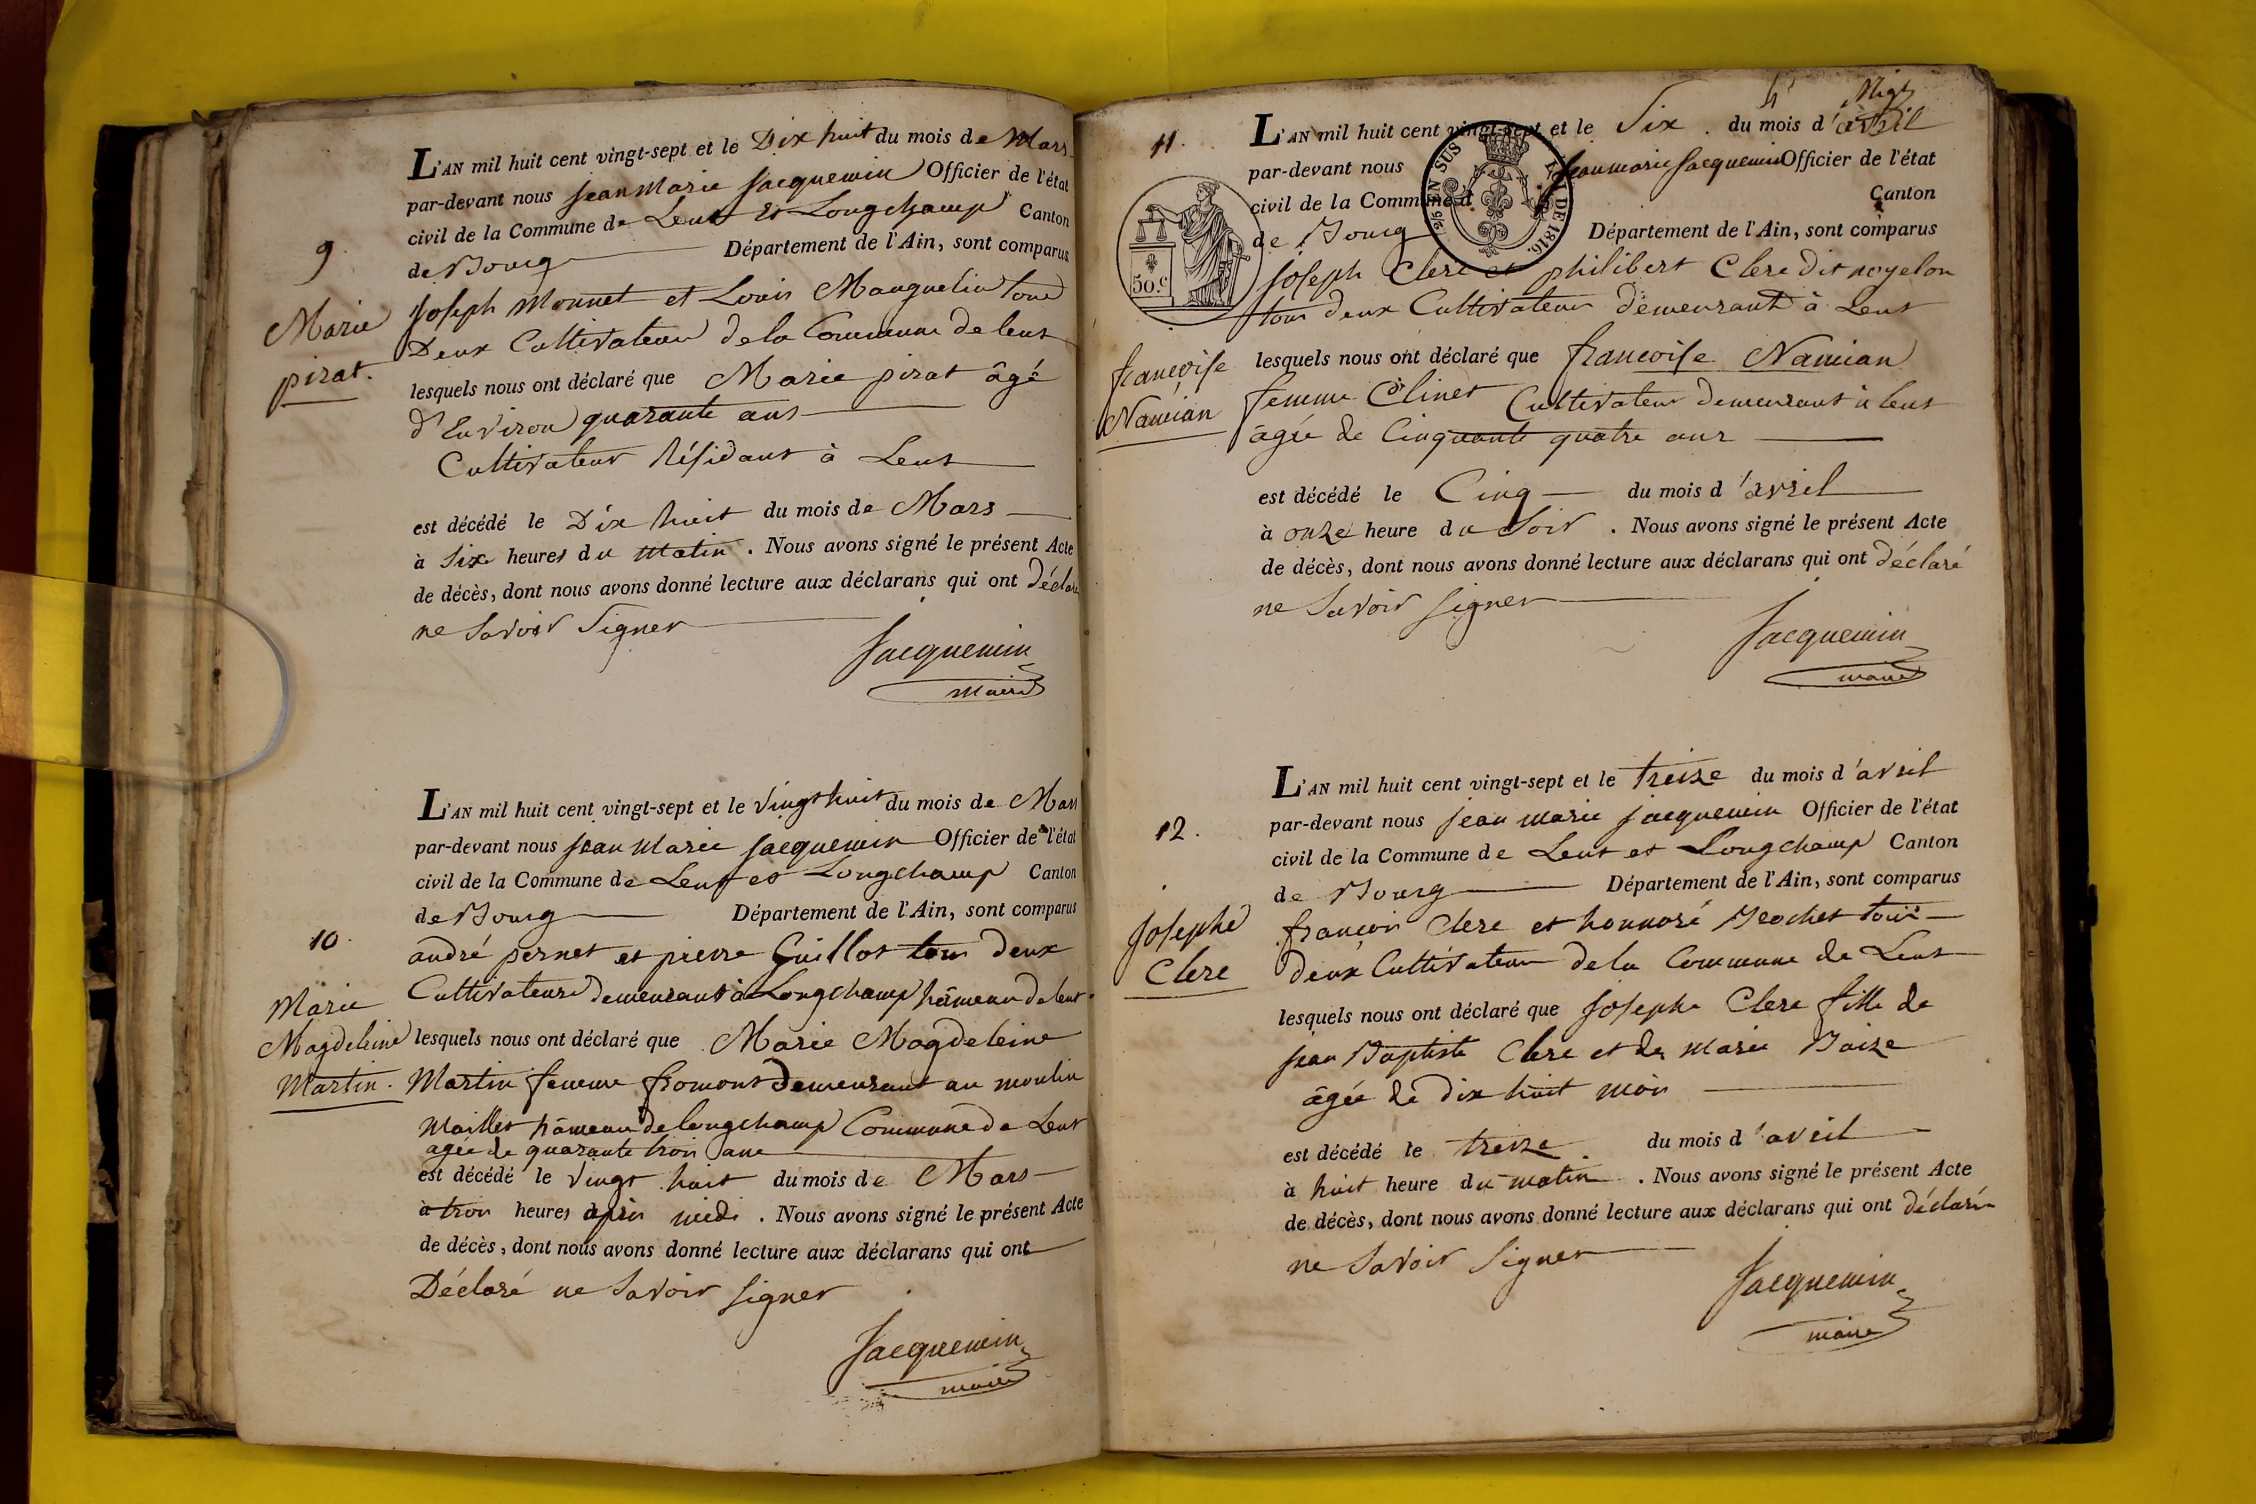 9
Marie
pirat.
L'AN mil huit cent vingt-sept et le Dix huit du mois de Mars
par-devant nous jean Marie Jacquemin Officier de l'état
civil de la Commune de Lent et Longchamp Canton
de Bourg Département de l'Ain, sont comparus
Joseph Monnet et Louis Mauguelin tous
Deux Cultivateurs de la Commune de lent
lesquels nous ont déclaré que Marie pirat âgé
d'Environ quarante ans
Cultivateur Résidant à Lent
est décédé le Dix huit du mois de Mars
à Six heures du matin. Nous avons signé le présent Acte
de décès, dont nous avons donné lecture aux déclarans qui ont Déclaré
ne Savoir Signer
Jacquemin
Maire
10
Marie
Magdeleine
Martin.
L'AN mil huit cent vingt-sept et le vingt huit du mois de Mars
par-devant nous jean Marie Jacquemin Officier de l'état
civil de la Commune de Lent et Longchamp Canton
de Bourg Département de l'Ain, sont comparus
andré pernet et pierre Guillot tous deux
Cultivateurs demeurant à Longchamp hâmeau de lent
lesquels nous ont déclaré que Marie Magdeleine
Martin femme fromont Demeurant au moulin
Maillet hâmeau de longchamp Commune de Lent
agée de quarante trois ans
est décédé le vingt huit du mois de Mars
à trois heures après midi. Nous avons signé le présent Acte
de décès, dont nous avons donné lecture aux déclarans qui ont
Déclaré ne Savoir Signer
Jacquemin
maire
11.
françoise
Namian
L'AN mil huit cent vingt-sept et le Six. du mois d'avril
par-devant nous jean marie Jacquemin Officier de l'état
civil de la Commune d Canton
de Bourg Département de l'Ain, sont comparus
joseph Clerc et philibert Clerc dit noyelon
tous deux Cultivateurs demeurant à Lent
lesquels nous ont déclaré que françoise Namian
femme Clinet Cultivateur demeurant à lent
âgée de Cinquante quatre ans
est décédé le Cinq du mois d'avril
à onze heure du Soir. Nous avons signé le présent Acte
de décès, dont nous avons donné lecture aux déclarans qui ont déclaré
ne Savoir signer
Jacquemin
maire
EN SUS
LOI DE 1816.
50.c
12.
Josephe
Clerc
L'AN mil huit cent vingt-sept et le treize du mois d'avril
par-devant nous jean marie jacquemin Officier de l'état
civil de la Commune de Lent et Longchamp Canton
de Bourg Département de l'Ain, sont comparus
françois Clerc et honnoré Brochet tous
deux Cultivateurs de la Commune de Lent
lesquels nous ont déclaré que josephe Clerc fille de
jean Baptiste Clerc et de marie Baize
âgée de dix huit mois
est décédé le treize. du mois d'avril
à huit heure du matin. Nous avons signé le présent Acte
de décès, dont nous avons donné lecture aux déclarans qui ont déclarés
ne Savoir Signer
Jacquemin
maire